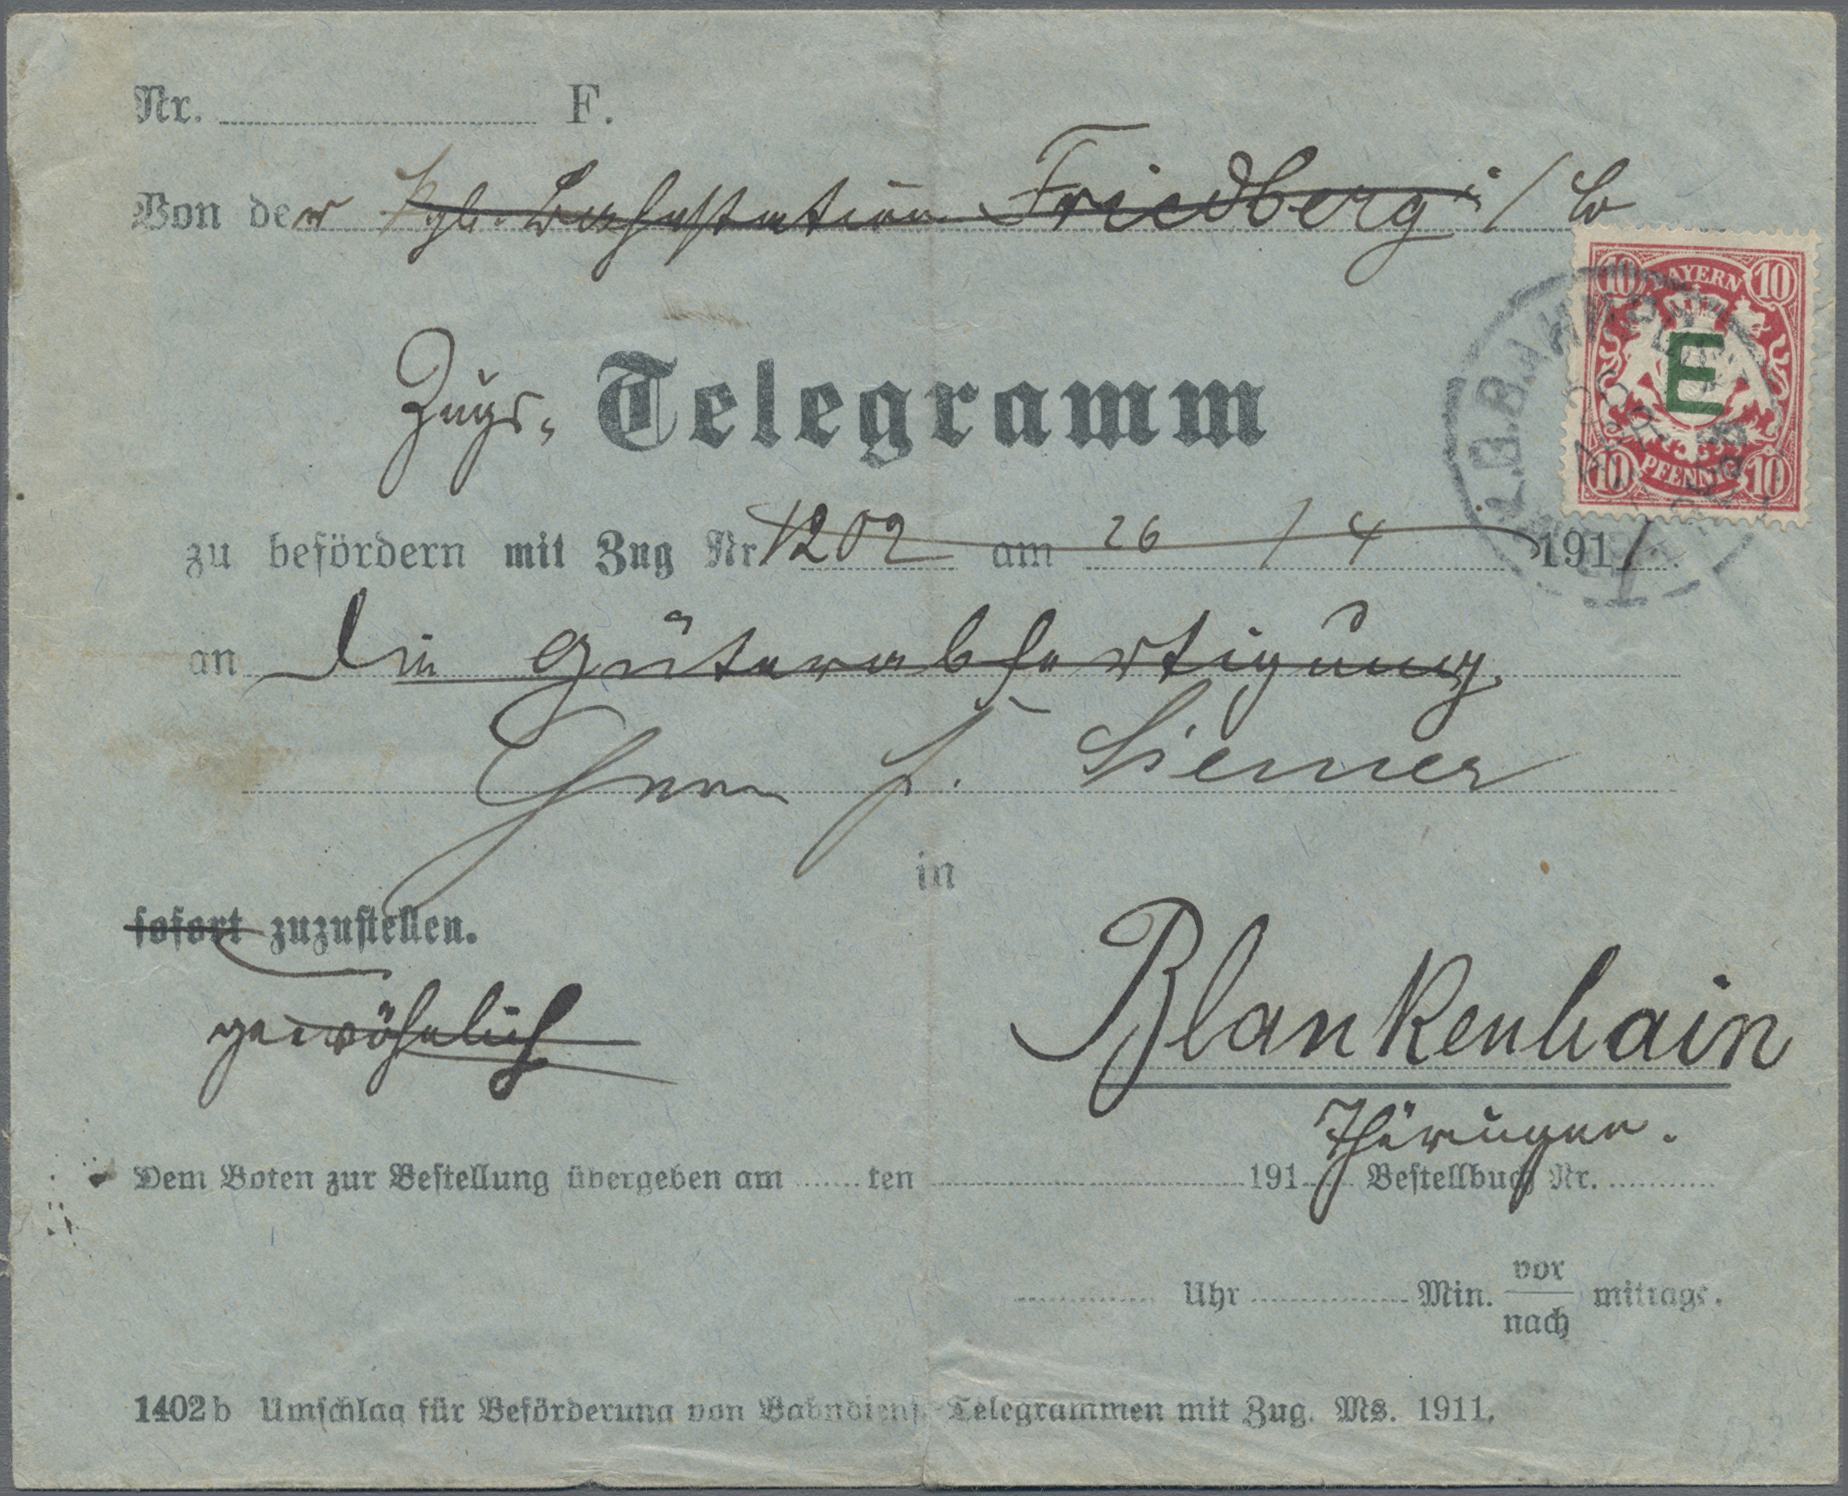 Nr. F.
Von der Kgl. Bahnstation Friedberg i/B
10 BAYERN 10
E
10 PFENNIG 10
Zugs- Telegramm
zu befördern mit Zug Nr 1202 am 26/4 1911
an die Güterabfertigung
Herrn
in
sofort zuzustellen.
gewöhnlich
Blankenhain
Thüringen.
Dem Boten zur Bestellung übergeben am ten 191 Bestellbuch Nr.
Uhr Min. vor/nach mittags.
1402b Umschlag für Beförderung von Bahndienst-Telegrammen mit Zug. Ms. 1911.